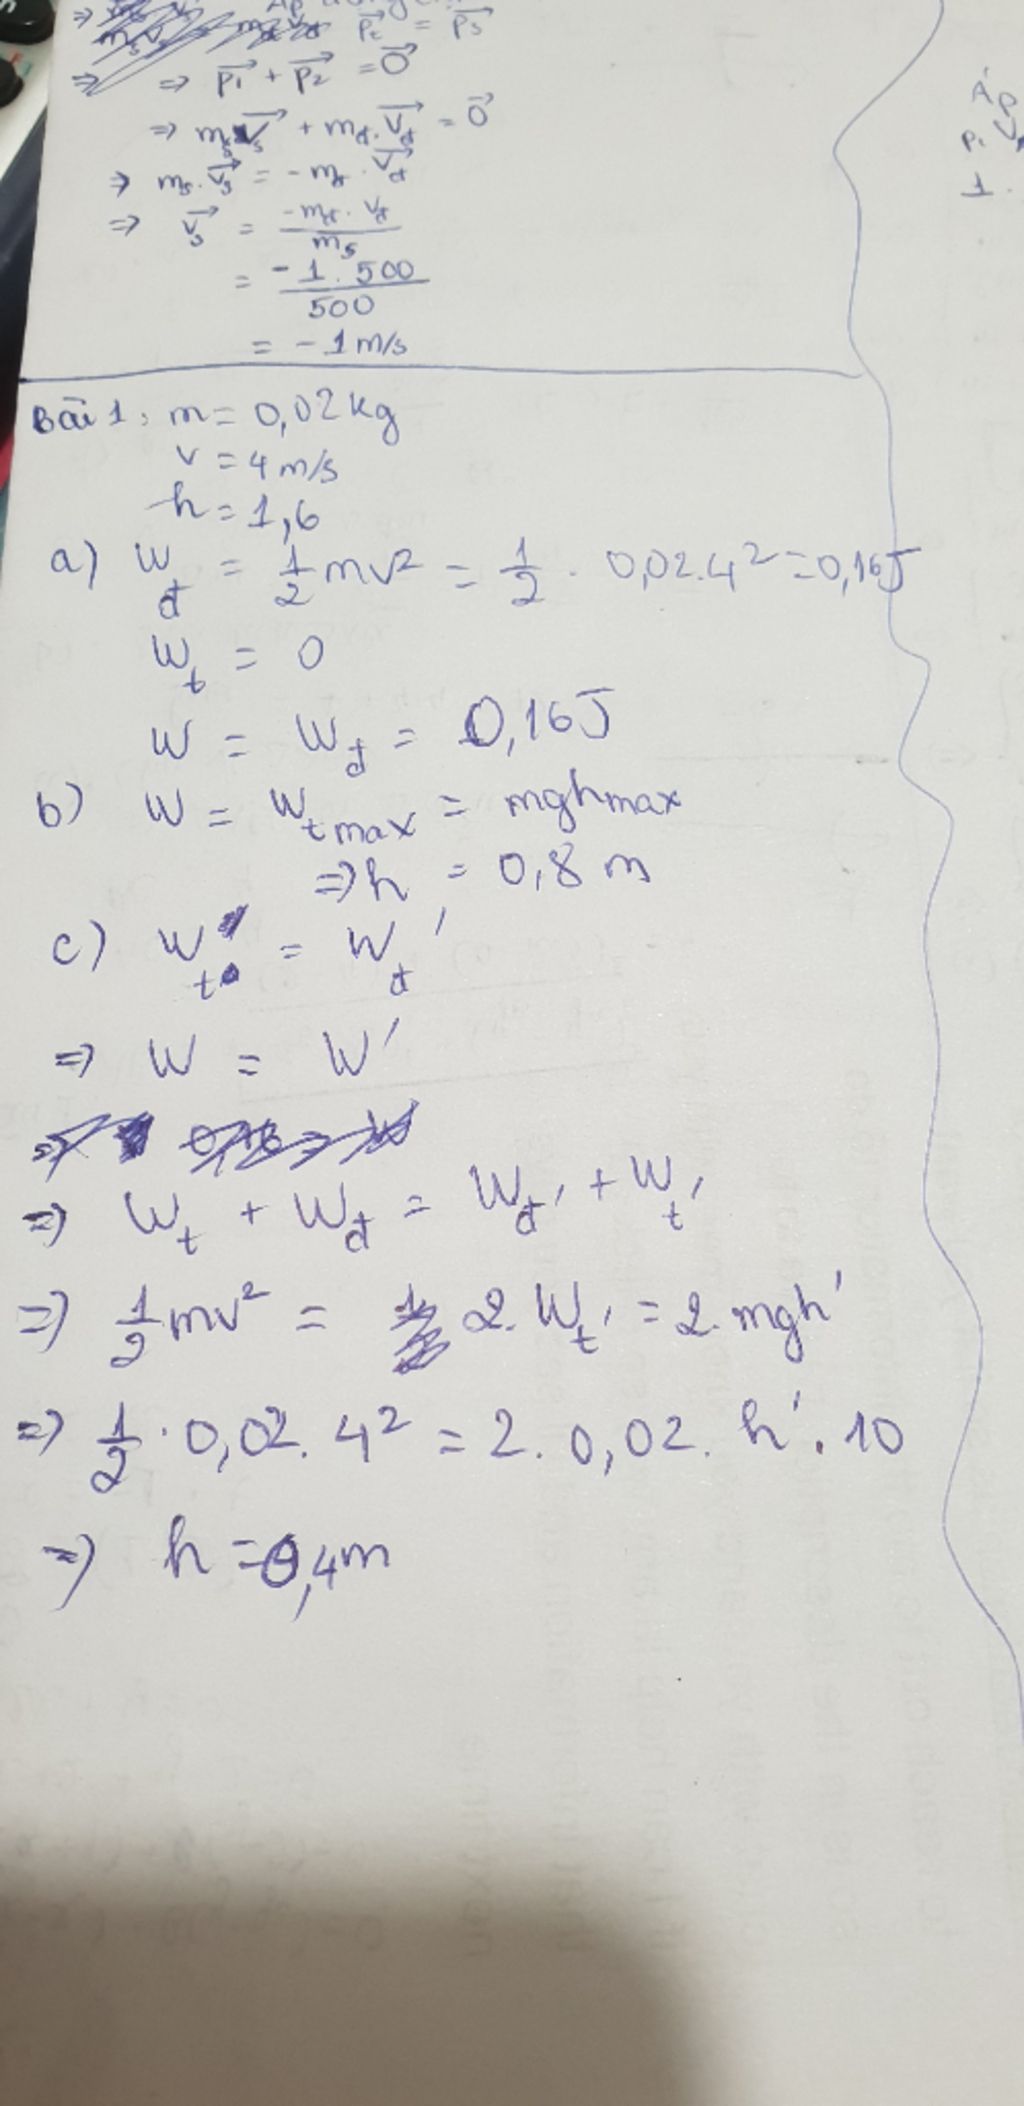 ⇒ p₁ + p₂ = 0
⇒ mₛ.vₛ + mđ.vđ = 0
⇒ mₛ.vₛ = -mđ.vđ
⇒ vₛ = -mđ.vđ / mₛ
= -1.500 / 500
= -1m/s
Bài 1: m = 0,02kg
v = 4m/s
h = 1,6
a) Wđ = 1/2 mv² = 1/2 . 0,02.4² = 0,16J
Wt = 0
W = Wđ = 0,16J
b) W = Wtmax = mghmax
⇒ h = 0,8 m
c) Wt = Wđ'
⇒ W = W'
⇒ Wt + Wđ = Wđ' + Wt'
⇒ 1/2 mv² = 2.Wt' = 2.mgh'
⇒ 1/2 . 0,02. 4² = 2. 0,02. h'. 10
⇒ h = 0,4m
Áp
1.